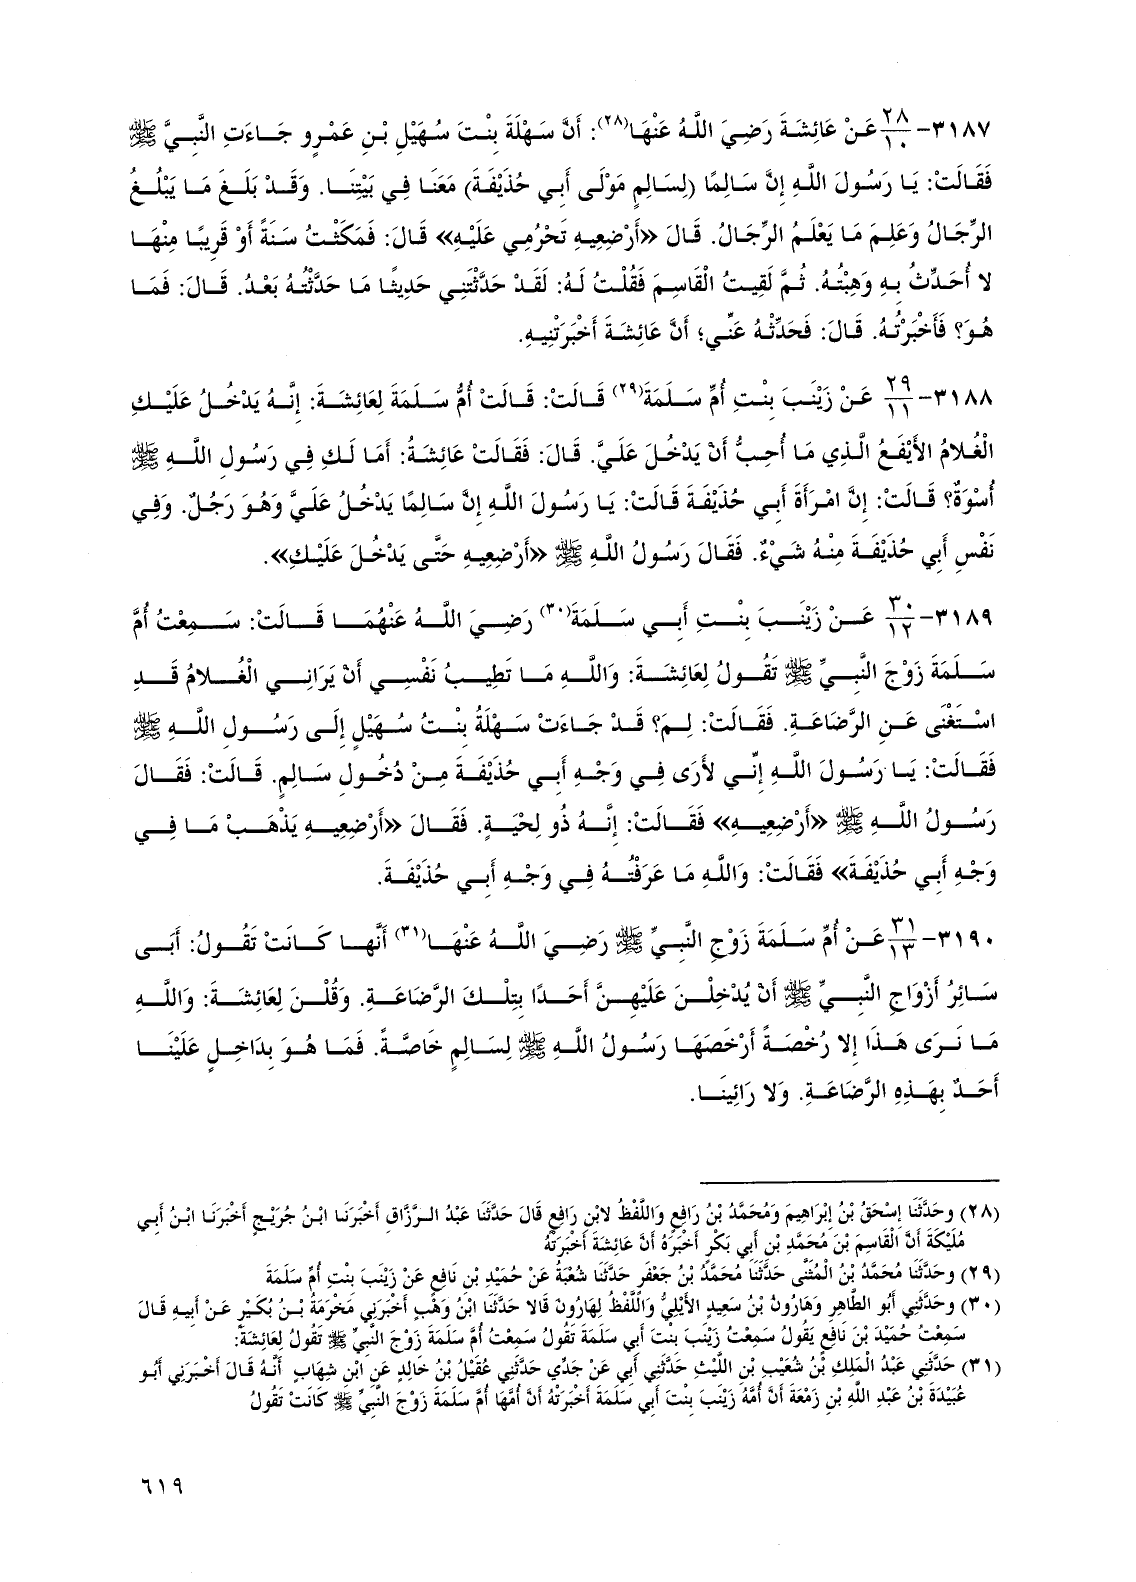 ٣١٨٧- ٢٨/١٠ عَنْ عَائِشَةَ رَضِيَ اللَّهُ عَنْهَا(٢٨): أَنَّ سَهْلَةَ بِنْتَ سُهَيْلِ بْنِ عَمْرٍو جَاءَتِ النَّبِيَّ ﷺ
فَقَالَتْ: يَا رَسُولَ اللَّهِ إِنَّ سَالِمًا (لِسَالِمٍ مَوْلَى أَبِي حُذَيْفَةَ) مَعَنَا فِي بَيْتِنَا. وَقَدْ بَلَغَ مَا يَبْلُغُ
الرِّجَالُ وَعَلِمَ مَا يَعْلَمُ الرِّجَالُ. قَالَ «أَرْضِعِيهِ تَحْرُمِي عَلَيْهِ» قَالَ: فَمَكَثْتُ سَنَةً أَوْ قَرِيبًا مِنْهَا
لا أُحَدِّثُ بِهِ وَهِبْتُهُ. ثُمَّ لَقِيتُ الْقَاسِمَ فَقُلْتُ لَهُ: لَقَدْ حَدَّثْتَنِي حَدِيثًا مَا حَدَّثْتُهُ بَعْدُ. قَالَ: فَمَا
هُوَ؟ فَأَخْبَرْتُهُ. قَالَ: فَحَدِّثْهُ عَنِّي؛ أَنَّ عَائِشَةَ أَخْبَرَتْنِيهِ.
٣١٨٨- ٢٩/١١ عَنْ زَيْنَبَ بِنْتِ أُمِّ سَلَمَةَ(٢٩) قَالَتْ: قَالَتْ أُمُّ سَلَمَةَ لِعَائِشَةَ: إِنَّهُ يَدْخُلُ عَلَيْكِ
الْغُلامُ الأَيْفَعُ الَّذِي مَا أُحِبُّ أَنْ يَدْخُلَ عَلَيَّ. قَالَ: فَقَالَتْ عَائِشَةُ: أَمَا لَكِ فِي رَسُولِ اللَّهِ ﷺ
أُسْوَةٌ؟ قَالَتْ: إِنَّ امْرَأَةَ أَبِي حُذَيْفَةَ قَالَتْ: يَا رَسُولَ اللَّهِ إِنَّ سَالِمًا يَدْخُلُ عَلَيَّ وَهُوَ رَجُلٌ. وَفِي
نَفْسِ أَبِي حُذَيْفَةَ مِنْهُ شَيْءٌ. فَقَالَ رَسُولُ اللَّهِ ﷺ «أَرْضِعِيهِ حَتَّى يَدْخُلَ عَلَيْكِ».
٣١٨٩- ٣٠/١٢ عَنْ زَيْنَبَ بِنْتِ أَبِي سَلَمَةَ(٣٠) رَضِيَ اللَّهُ عَنْهُمَا قَالَتْ: سَمِعْتُ أُمَّ
سَلَمَةَ زَوْجَ النَّبِيِّ ﷺ تَقُولُ لِعَائِشَةَ: وَاللَّهِ مَا تَطِيبُ نَفْسِي أَنْ يَرَانِي الْغُلامُ قَدِ
اسْتَغْنَى عَنِ الرَّضَاعَةِ. فَقَالَتْ: لِمَ؟ قَدْ جَاءَتْ سَهْلَةُ بِنْتُ سُهَيْلٍ إِلَى رَسُولِ اللَّهِ ﷺ
فَقَالَتْ: يَا رَسُولَ اللَّهِ إِنِّي لأَرَى فِي وَجْهِ أَبِي حُذَيْفَةَ مِنْ دُخُولِ سَالِمٍ. قَالَتْ: فَقَالَ
رَسُولُ اللَّهِ ﷺ «أَرْضِعِيهِ» فَقَالَتْ: إِنَّهُ ذُو لِحْيَةٍ. فَقَالَ «أَرْضِعِيهِ يَذْهَبْ مَا فِي
وَجْهِ أَبِي حُذَيْفَةَ» فَقَالَتْ: وَاللَّهِ مَا عَرَفْتُهُ فِي وَجْهِ أَبِي حُذَيْفَةَ.
٣١٩٠- ٣١/١٣ عَنْ أُمِّ سَلَمَةَ زَوْجِ النَّبِيِّ ﷺ رَضِيَ اللَّهُ عَنْهَا(٣١) أَنَّها كَانَتْ تَقُولُ: أَبَى
سَائِرُ أَزْوَاجِ النَّبِيِّ ﷺ أَنْ يُدْخِلْنَ عَلَيْهِنَّ أَحَدًا بِتِلْكَ الرَّضَاعَةِ. وَقُلْنَ لِعَائِشَةَ: وَاللَّهِ
مَا نَرَى هَذَا إِلا رُخْصَةً أَرْخَصَهَا رَسُولُ اللَّهِ ﷺ لِسَالِمٍ خَاصَّةً. فَمَا هُوَ بِدَاخِلٍ عَلَيْنَا
أَحَدٌ بِهَذِهِ الرَّضَاعَةِ. وَلا رَائِينَا.
(٢٨) وحَدَّثَنَا إِسْحَقُ بْنُ إِبْرَاهِيمَ وَمُحَمَّدُ بْنُ رَافِعٍ وَاللَّفْظُ لابْنِ رَافِعٍ قَالَ حَدَّثَنَا عَبْدُ الرَّزَّاقِ أَخْبَرَنَا ابْنُ جُرَيْجٍ أَخْبَرَنَا ابْنُ أَبِي
مُلَيْكَةَ أَنَّ الْقَاسِمَ بْنَ مُحَمَّدِ بْنِ أَبِي بَكْرٍ أَخْبَرَهُ أَنَّ عَائِشَةَ أَخْبَرَتْهُ
(٢٩) وحَدَّثَنَا مُحَمَّدُ بْنُ الْمُثَنَّى حَدَّثَنَا مُحَمَّدُ بْنُ جَعْفَرٍ حَدَّثَنَا شُعْبَةُ عَنْ حُمَيْدِ بْنِ نَافِعٍ عَنْ زَيْنَبَ بِنْتِ أُمِّ سَلَمَةَ
(٣٠) وحَدَّثَنِي أَبُو الطَّاهِرِ وَهَارُونُ بْنُ سَعِيدٍ الأَيْلِيُّ وَاللَّفْظُ لِهَارُونَ قَالا حَدَّثَنَا ابْنُ وَهْبٍ أَخْبَرَنِي مَخْرَمَةُ بْنُ بُكَيْرٍ عَنْ أَبِيهِ قَالَ
سَمِعْتُ حُمَيْدَ بْنَ نَافِعٍ يَقُولُ سَمِعْتُ زَيْنَبَ بِنْتَ أَبِي سَلَمَةَ تَقُولُ سَمِعْتُ أُمَّ سَلَمَةَ زَوْجَ النَّبِيِّ ﷺ تَقُولُ لِعَائِشَةَ:
(٣١) حَدَّثَنِي عَبْدُ الْمَلِكِ بْنُ شُعَيْبِ بْنِ اللَّيْثِ حَدَّثَنِي أَبِي عَنْ جَدِّي حَدَّثَنِي عُقَيْلُ بْنُ خَالِدٍ عَنِ ابْنِ شِهَابٍ أَنَّهُ قَالَ أَخْبَرَنِي أَبُو
عُبَيْدَةَ بْنُ عَبْدِ اللَّهِ بْنِ زَمْعَةَ أَنَّ أُمَّهُ زَيْنَبَ بِنْتَ أَبِي سَلَمَةَ أَخْبَرَتْهُ أَنَّ أُمَّهَا أُمَّ سَلَمَةَ زَوْجَ النَّبِيِّ ﷺ كَانَتْ تَقُولُ
٦١٩